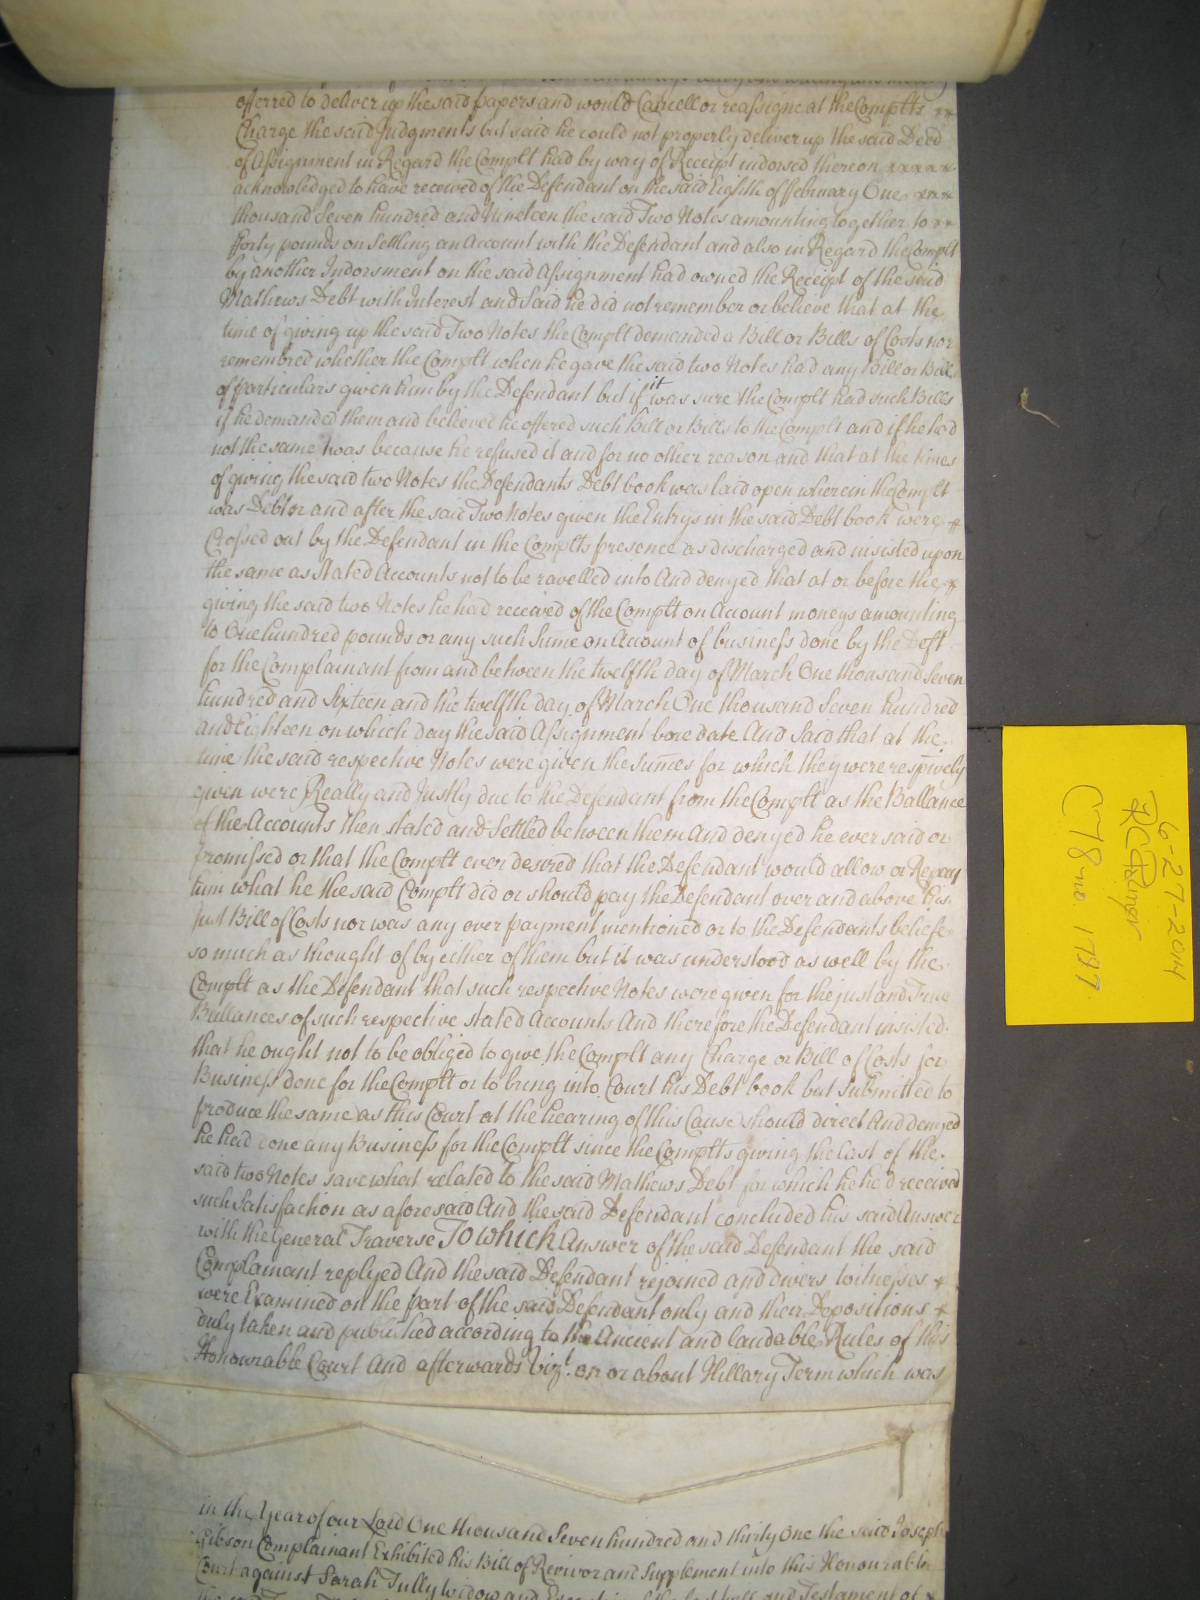 offerred to deliver up the said papers and would Cancell or reassigne at the Complts xx
Charge the said Judgments but said he could not properly deliver up the said Deed
of Assignment in Regard the Complt had by way of Receipt indorsed thereon xxxxx
acknowledged to have received of the Defendant on the said Eighth of ffebruary One xxx
thousand Seven hundred and Nineteen the said Two Notes amounting together to xx
fforty pounds on Settling an Account with the Defendant and also in Regard the Complt
by another Indorsment on the said Assignment had owned the Receipt of the said
Mathews Debt with Interest and Said he did not remember or believe that at the
time of giving up the said Two Notes the Complt demanded a Bill or Bills of Costs nor
remembred whether the Complt when he gave the said two Notes had any Bill or Bill
of particulars given him by the Defendant but if it was sure the Complt had such Bills
if he demanded them and believed he offered such Bill or Bills to the Complt and if he had
not the same twas because he refused it and for no other reason and that at the times
of giving the said two Notes the Defendants Debt book was laid open wherein the Complt
was Debtor and after the said Two Notes given the Entrys in the said Debt book were x
Crossed out by the Defendant in the Complts presence as discharged and insisted upon
the same as stated Accounts not to be ravelled into And denyed that at or before the x
giving the said two Notes he had received of the Complt on Account moneys amounting
to One hundred pounds or any such Sume on Account of business done by the Deft
for the Complainant from and between the twelfth day of March One thousand Seven
hundred and Sixteen and the twelfth day of March One thousand Seven hundred
and Eighteen on which day the said Assignment bore date And Said that at the
time the said respective Notes were given the Sumes for which they were respively
given were Really and Justly due to the Defendant from the Complt as the Ballance
of the Accounts then stated and Settled between them And denyed he ever said or
promissed or that the Complt ever desired that the Defendant would allow or Repay
him what he the said Complt did or should pay the Defendant over and above his
Just Bill of Costs nor was any over payment mentioned or to the Defendants beliefe
so much as thought of by either of them but it was understood as well by the
Complt as the Defendant that such respective Notes were given for the just and True
Ballances of such respective stated Accounts And therefore the Defendant insisted
that he ought not to be obliged to give the Complt any Charge or Bill of Costs for
Business done for the Complt or to bring into Court his Debt book but Submitted to
produce the same as this Court at the hearing of this Cause should direct And denyed
he had done any Business for the Complt since the Complts giving the last of the
said two Notes save what related to the said Mathews Debt for which he had received
such Satisfaction as aforesaid And the said Defendant concluded his said Answer
with the General Traverse To which Answer of the said Defendant the said
Complainant replyed And the said Defendant rejoined and divers witnesses x
were Examined on the part of the said Defendant only and their Depositions x
duly taken and published according to the Ancient and laudable Rules of this
Honourable Court And afterwards vizt. on or about Hillary Term which was
in the Year of our Lord One thousand Seven hundred and thirty One the said Joseph
Gibson Complainant Exhibited his Bill of Revivor and Supplement into this Honourable
Court against Sarah Tully Widow and
Will and Testament of x
6-27-2014
C78 no 1797